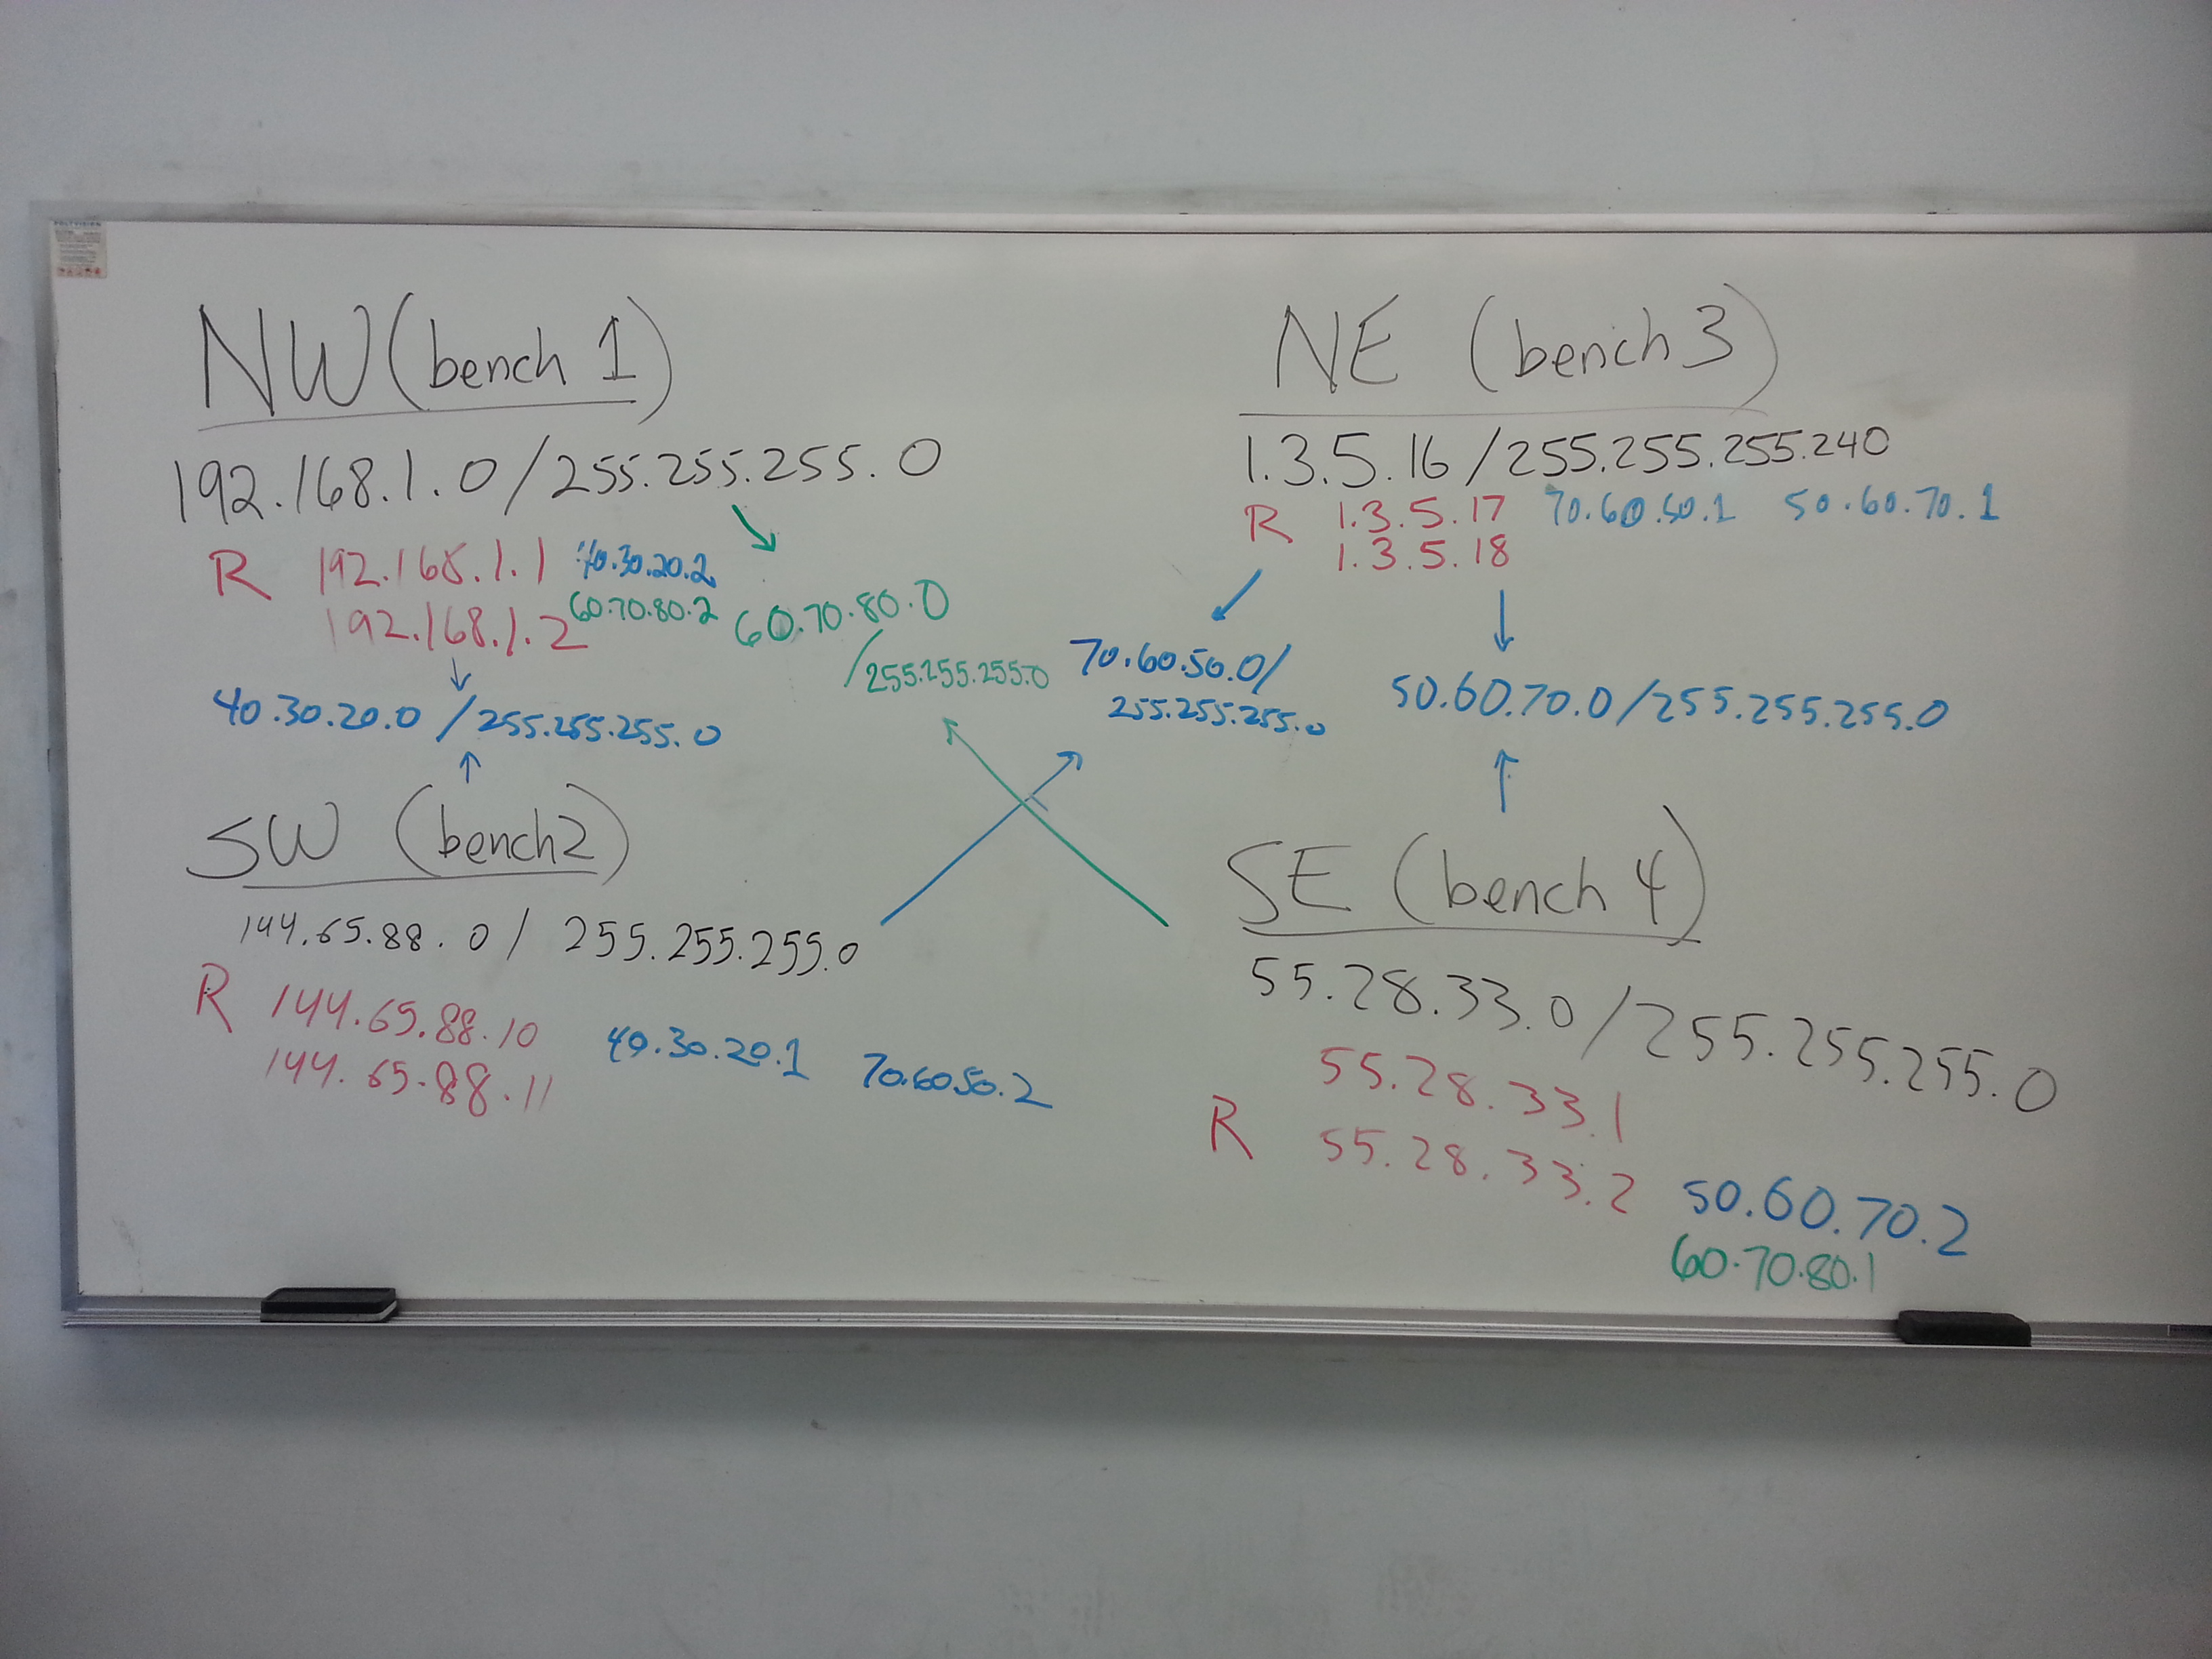 NW (bench 1)
192.168.1.0/255.255.255.0
R 192.168.1.1 40.30.20.2
192.168.1.2 60.70.80.2
60.70.80.0
/255.255.255.0
40.30.20.0/255.255.255.0
NE (bench 3)
1.3.5.16/255.255.255.240
R 1.3.5.17 70.60.50.1 50.60.70.1
1.3.5.18
70.60.50.0/
255.255.255.0
50.60.70.0/255.255.255.0
SW (bench2)
144.65.88.0/255.255.255.0
R 144.65.88.10
144.65.88.11
40.30.20.1 70.6050.2
SE (bench 4)
55.28.33.0/255.255.255.0
55.28.33.1
R 55.28.33.2
50.60.70.2
60.70.80.1